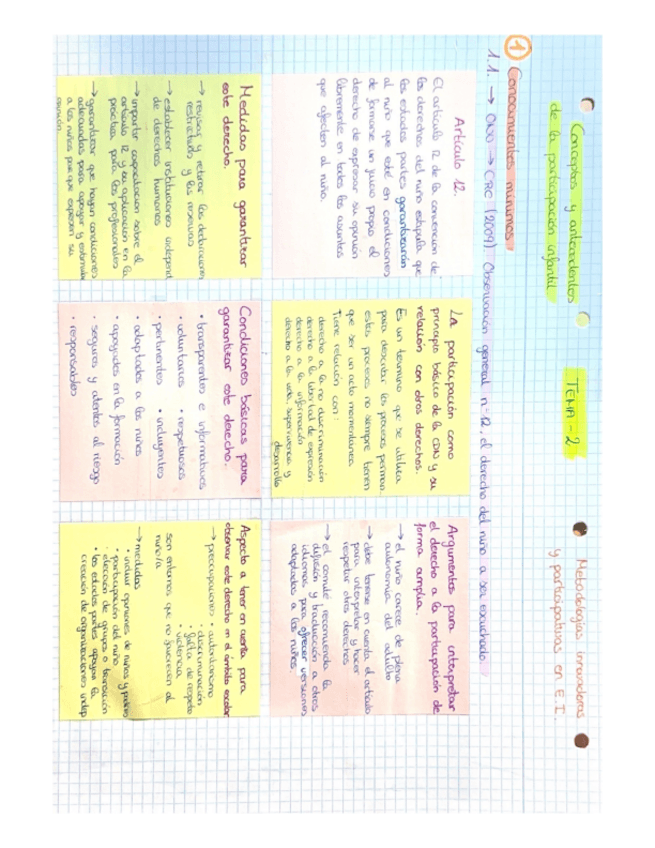 Conceptos y antecedentes
de la participación infantil
TEMA-2
Metodologías innovadoras
y participativas en E.I.
① Conocimientos mínimos
1.1. → ONU → CRC (2009) Observación general nº 12, el derecho del niño a ser escuchado
Artículo 12.
El artículo 12 de la convención de
los derechos del niño estipula que
los estados partes garantizarán
al niño que esté en condiciones
de formarse un juicio propio el
derecho de expresar su opinión
libremente en todos los asuntos
que afecten al niño.
La participación como
principio básico de la CDN y su
relación con otros derechos.
Es un término que se utiliza
para describir los procesos perman.
estos procesos no siempre tienen
que ser un acto momentánea.
Tiene relación con:
derecho a la no discriminación
derecho a la libertad de expresión
derecho a la información
derecho a la vida, supervivencia y
desarrollo
Argumentos para interpretar
el derecho a la participación de
forma amplia.
→ el niño carece de plena
autonomía del adulto
→ debe tenerse en cuenta el artículo
para interpretar y hacer
respetar otros derechos
→ el comité recomienda la
difusión y traducción a otros
idiomas para ofrecer versiones
adaptadas a los niños.
Medidas para garantizar
este derecho.
→ revisar y retirar las declaraciones
restrictivas y las reservas
→ establecer instituciones independ
de derechos humanos
→ impartir capacitación sobre el
artículo 12 y su aplicación en la
práctica para los profesionales
→ garantizar que hayan condiciones
adecuadas para apoyar y estimular
a los niños para que expresen su
opinión
Condiciones básicas para
garantizar este derecho.
• transparentes e informativas
• voluntarios • respetuosos
• pertinentes • incluyentes
• adaptados a los niños
• apoyados en la formación
• seguros y atentos al riesgo
• responsables
Aspecto a tener en cuenta para
observar este derecho en el ámbito escolar
→ preocupaciones • autoritarismo
• discriminación
• falta de respeto
• violencia
son entornos que no favorecen al
niño/a
→ medidas
• incluir opiniones de niños y padres
• participación del niño
elección de grupos o transición
• los estados partes apoyan la
creación de organizaciones indep